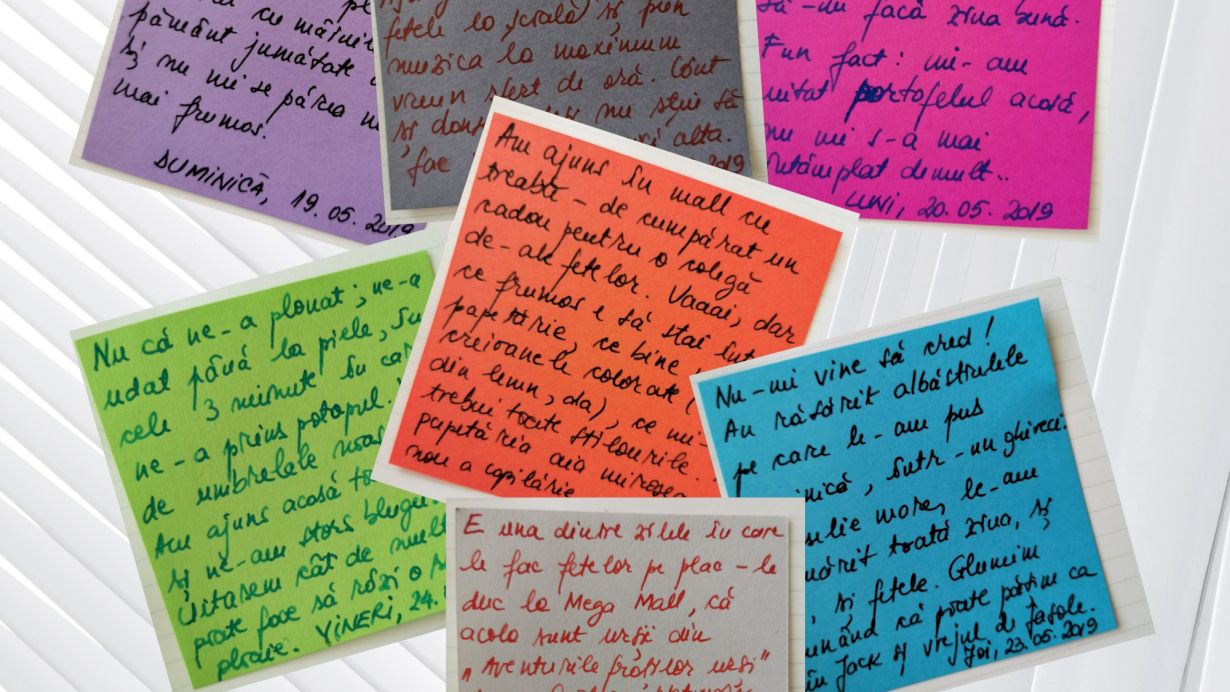 cu mâini
pământ jumătate
Și nu mi se părea
mai frumos.
DUMINICĂ, 19.05.2019
fetele la școală și pun
muzica la maximum
vreun sfert de oră. Cânt
și nu știu să
alta.
fac
2019
să-mi facă ziua bună.
Fun fact: mi-am
uitat portofelul acasă,
nu mi s-a mai
întâmplat demult..
LUNI, 20.05.2019
Am ajuns în mall cu
treabă – de cumpărat un
cadou pentru o colegă
de-ale fetelor. Vaaai, dar
ce frumos e să stai într
papetărie, ce bine
creioanele colorate (
din lemn, da), ce mi-
trebui tocite stilourile.
papetăria aia mirosea
nou a copilărie
Nu că ne-a plouat; ne-a
udat până la piele, în
cele 3 minute în car
ne-a prins potopul.
de umbrelele noas
Am ajuns acasă
și ne-am stors blugii
Uitasem cât de mult
poate face să râzi o
ploaie. VINERI, 24.
Nu-mi vine să cred!
Au răsărit albăstrelele
pe care le-am pus
, într-un ghiveci.
more, le-am
toată ziua, și
, și fetele. Glumim
că poate pățim ca
în Jack și vrejul de fasole.
Joi, 23.05.2019
E una dintre zilele în care
le fac fetelor pe plac – le
duc la Mega Mall, că
acolo sunt urșii din
„Aventurile fraților urși"